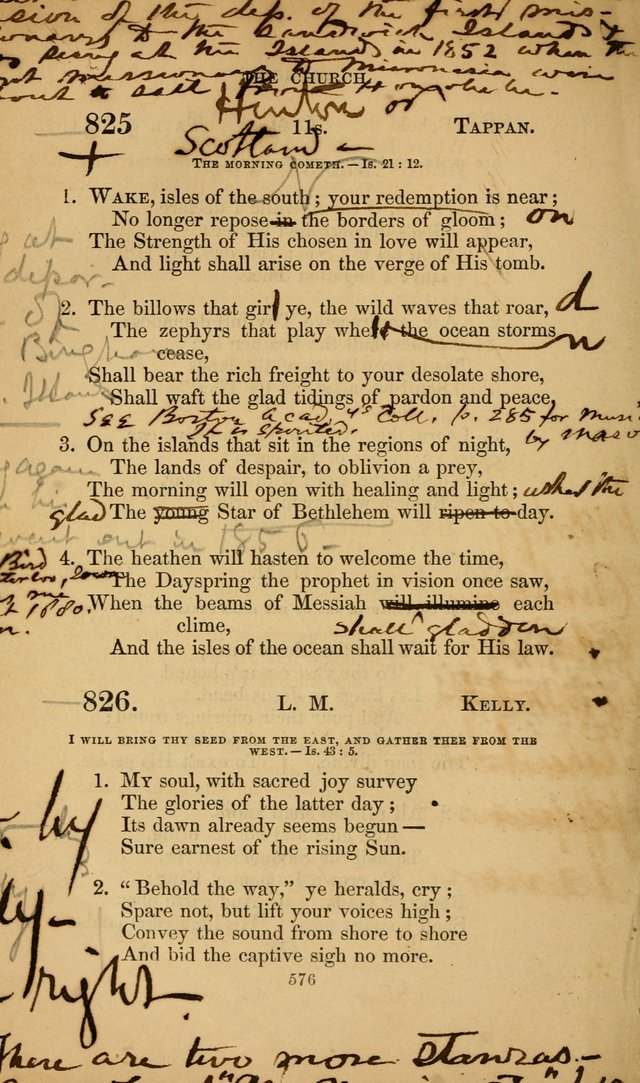 sion of the dep. of the first mis-
to the Sandwich Islands &
being at the Islands in 1852 when the
to Micronesia were
out to sail from Honolulu.
THE CHURCH.
Hinton or
825 11s. TAPPAN.
+ Scotland
THE MORNING COMETH. — Is. 21 : 12.
1. WAKE, isles of the south ; your redemption is near ;
No longer repose in the borders of gloom ; on
The Strength of His chosen in love will appear,
And light shall arise on the verge of His tomb.
2. The billows that girt ye, the wild waves that roar, d
The zephyrs that play where the ocean storms
cease,
Shall bear the rich freight to your desolate shore,
Shall waft the glad tidings of pardon and peace,
See Boston Acad's Coll. p. 285 for Music
by Maso
3. On the islands that sit in the regions of night,
The lands of despair, to oblivion a prey,
The morning will open with healing and light ; ushers the
glad The young Star of Bethlehem will ripen to day.
went out in 1856-
4. The heathen will hasten to welcome the time,
The Dayspring the prophet in vision once saw,
When the beams of Messiah will illumine each
1880.
clime, shall gladden
And the isles of the ocean shall wait for His law.
826. L. M. KELLY.
I WILL BRING THY SEED FROM THE EAST, AND GATHER THEE FROM THE
WEST. — Is. 43 : 5.
1. MY soul, with sacred joy survey
The glories of the latter day ;
Its dawn already seems begun —
Sure earnest of the rising Sun.
by
2. “ Behold the way,” ye heralds, cry ;
Spare not, but lift your voices high ;
Convey the sound from shore to shore
And bid the captive sigh no more.
576
right.
There are two more stanzas.-